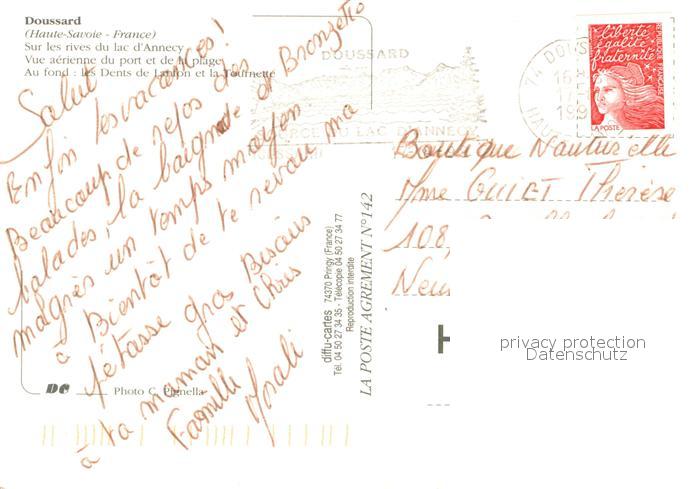 Doussard
(Haute-Savoie - France)
Sur les rives du lac d'Annecy
Vue aérienne du port et de la plage
Au fond : les Dents de Lanfon et la Tournette
Salut
Enfin les vacances!
Beaucoup de repos des
balades, la baignade et Bronzette
malgrès un temps moyen
à Bientôt de te revoir ma
gros Bisous
à ta maman et Chris
Famille
DOUSSARD
LAC D'ANNECY
74 DOUS
16
HAU
liberté
égalité
fraternité
RÉPUBLIQUE FRANÇAISE
LA POSTE
Boutique Nauturelle
Mme GUIET Thérèse
108,
diffu-cartes 74370 Pringy (France)
Tél. 04 50 27 34 35 - Télécopie 04 50 27 34 77
Reproduction interdite
LA POSTE AGREMENT N° 142
DC Photo C. Pignella
privacy protection
Datenschutz